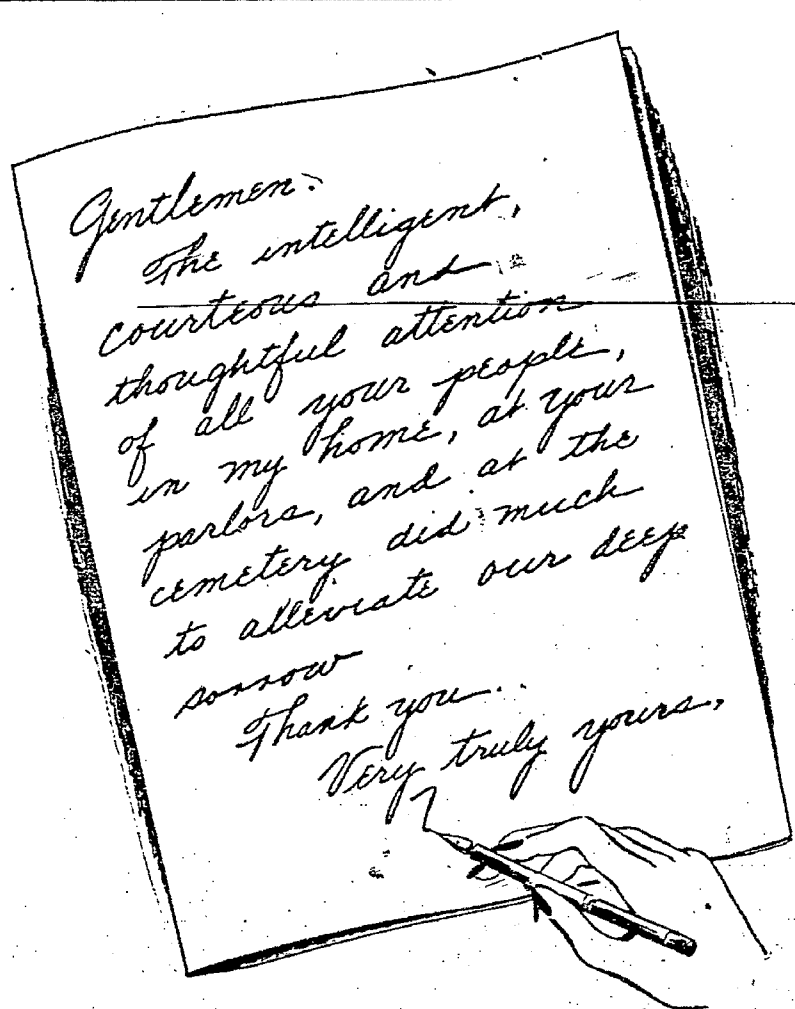 Gentlemen:
The intelligent,
courteous and
thoughtful attention
of all your people,
in my home, at your
parlors, and at the
cemetery did much
to alleviate our deep
sorrow
Thank you..
Very truly yours,